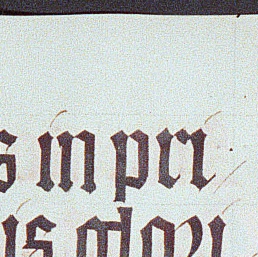 s in pri
is glori